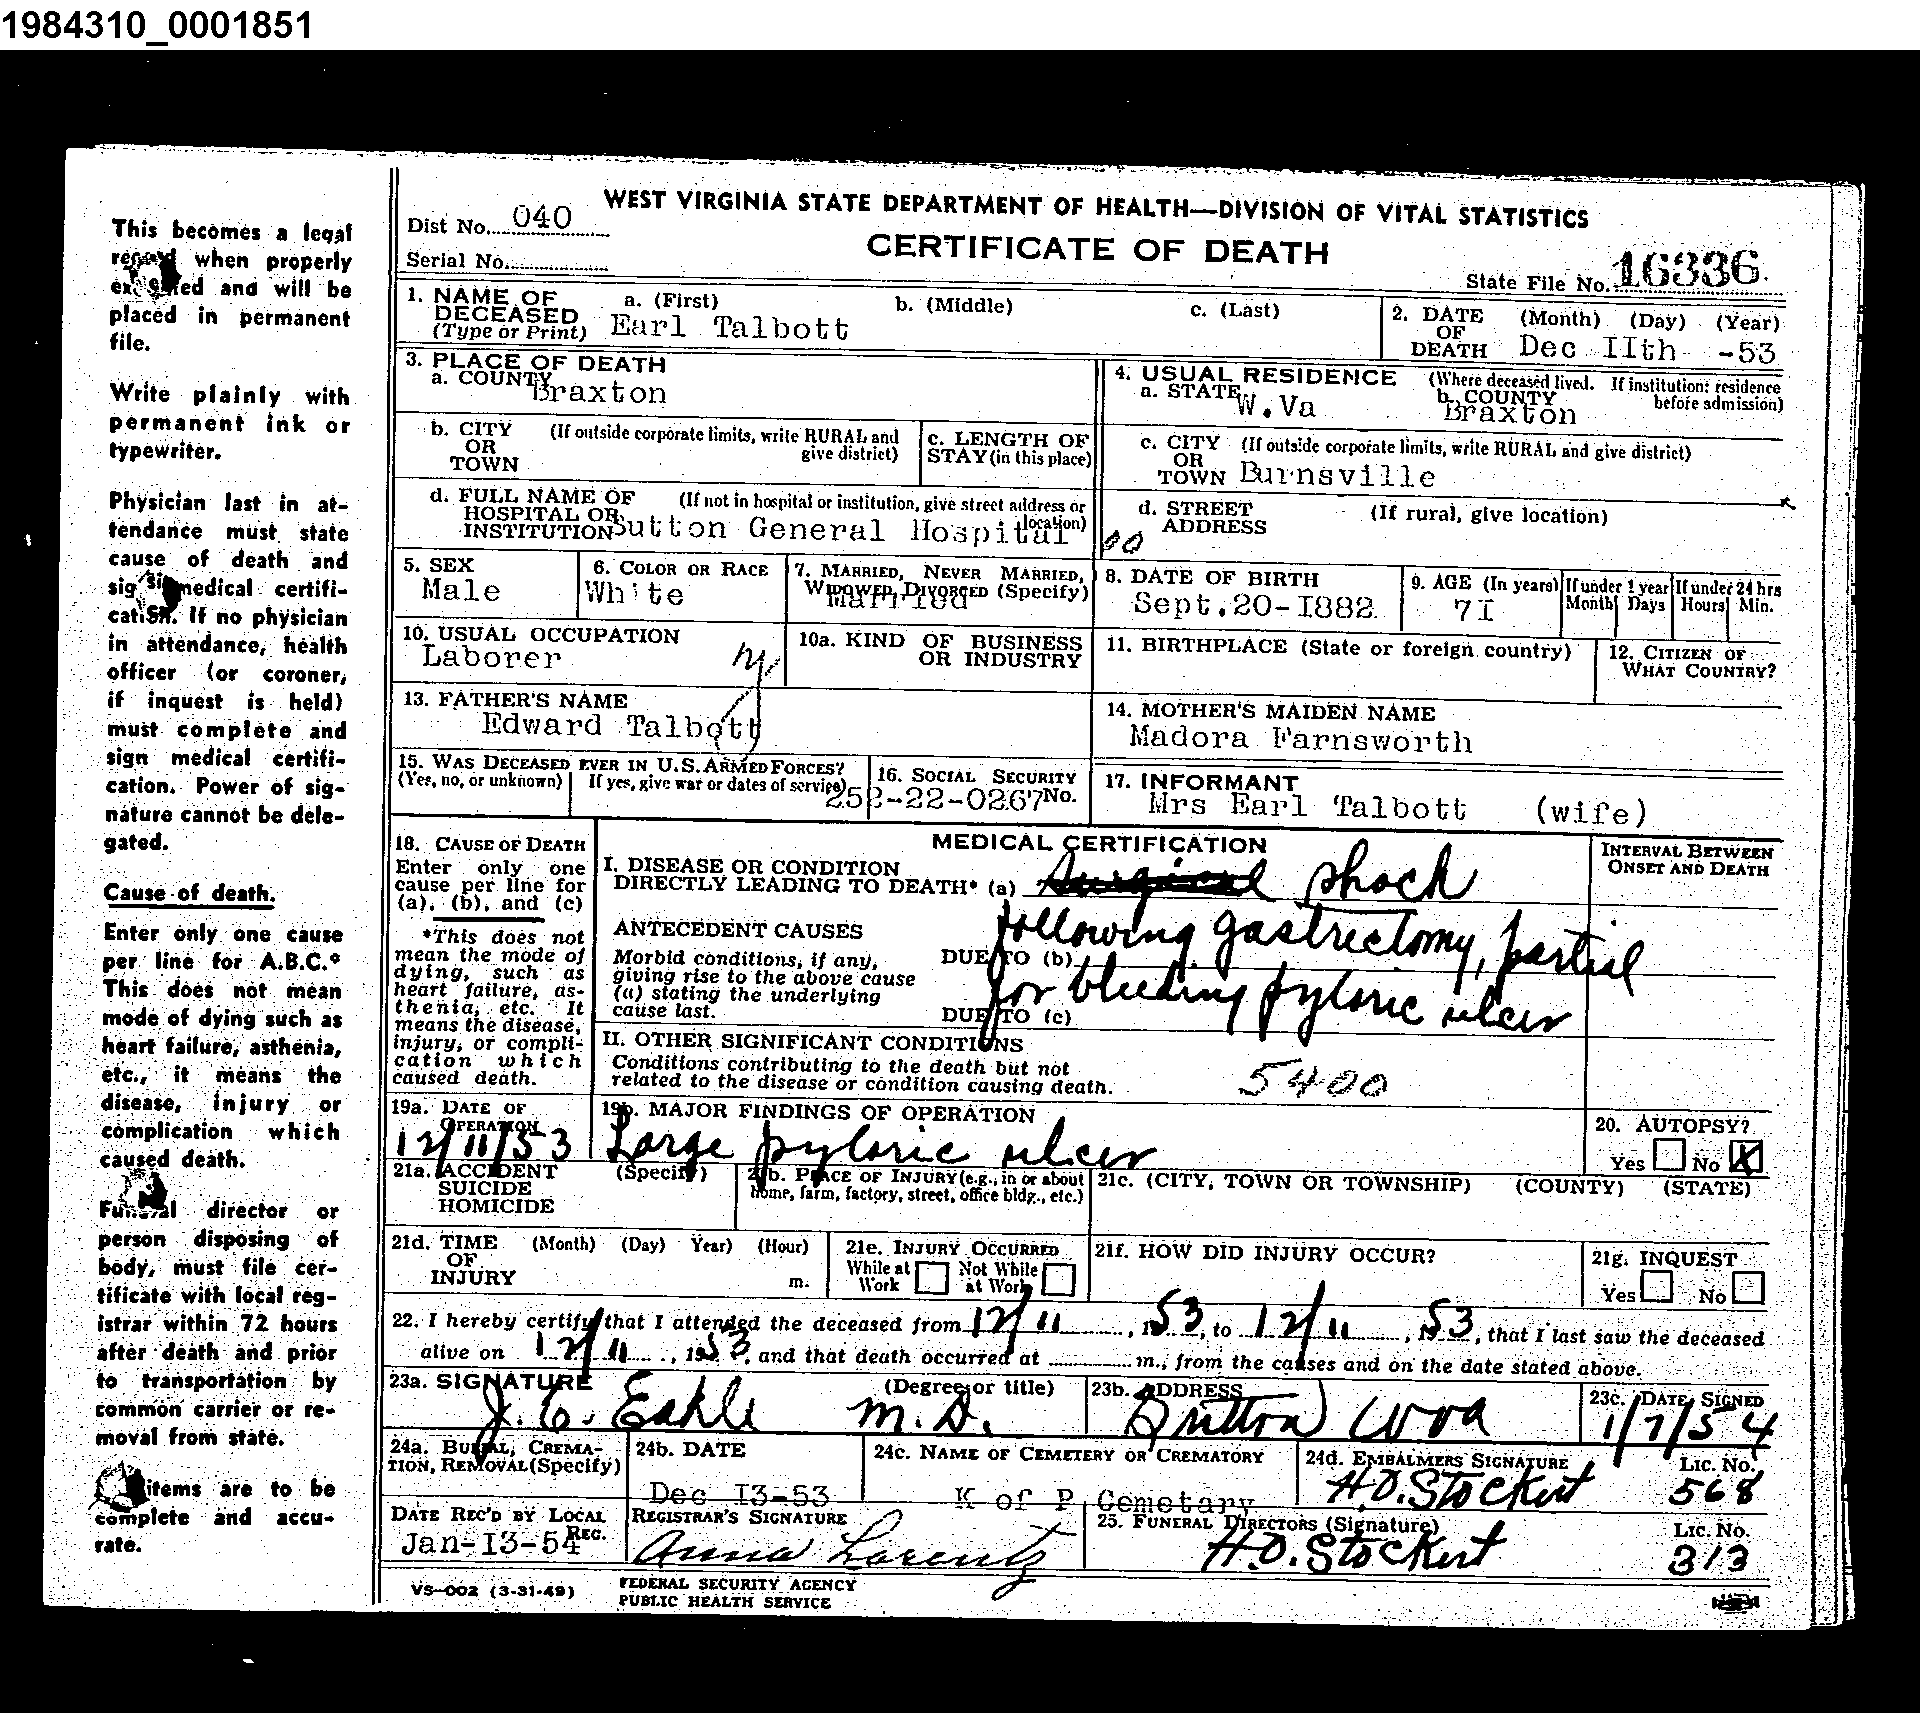 1984310_0001851
WEST VIRGINIA STATE DEPARTMENT OF HEALTH—DIVISION OF VITAL STATISTICS
Dist No. 040
CERTIFICATE OF DEATH
Serial No.
State File No. 16336
1. NAME OF DECEASED (Type or Print) a. (First) b. (Middle) c. (Last)
Earl Talbott
2. DATE OF DEATH (Month) (Day) (Year)
Dec IIth -53
3. PLACE OF DEATH
a. COUNTY Braxton
4. USUAL RESIDENCE (Where deceased lived. If institution: residence before admission)
a. STATE W.Va b. COUNTY Braxton
b. CITY OR TOWN (If outside corporate limits, write RURAL and give district)
c. LENGTH OF STAY (in this place)
c. CITY OR TOWN (If outside corporate limits, write RURAL and give district)
Burnsville
d. FULL NAME OF HOSPITAL OR INSTITUTION (If not in hospital or institution, give street address or location)
Sutton General Hospital
d. STREET ADDRESS (If rural, give location)
00
5. SEX
Male
6. COLOR OR RACE
White
7. MARRIED, NEVER MARRIED, WIDOWED, DIVORCED (Specify)
Married
8. DATE OF BIRTH
Sept.20-I882
9. AGE (In years) If under 1 year Months Days If under 24 hrs Hours Min.
7I
10. USUAL OCCUPATION
Laborer
10a. KIND OF BUSINESS OR INDUSTRY
11. BIRTHPLACE (State or foreign country)
12. CITIZEN OF WHAT COUNTRY?
13. FATHER'S NAME
Edward Talbott
14. MOTHER'S MAIDEN NAME
Madora Farnsworth
15. WAS DECEASED EVER IN U.S. ARMED FORCES?
(Yes, no, or unknown) If yes, give war or dates of service)
16. SOCIAL SECURITY No.
252-22-0267
17. INFORMANT
Mrs Earl Talbott (wife)
18. CAUSE OF DEATH
Enter only one cause per line for (a), (b), and (c)
*This does not mean the mode of dying, such as heart failure, asthenia, etc. It means the disease, injury, or complication which caused death.
MEDICAL CERTIFICATION
INTERVAL BETWEEN ONSET AND DEATH
I. DISEASE OR CONDITION DIRECTLY LEADING TO DEATH* (a) Surgical shock
ANTECEDENT CAUSES
Morbid conditions, if any, giving rise to the above cause (a) stating the underlying cause last.
DUE TO (b) following gastrectomy, partial
DUE TO (c) for bleeding pyloric ulcer
II. OTHER SIGNIFICANT CONDITIONS
Conditions contributing to the death but not related to the disease or condition causing death.
5400
19a. DATE OF OPERATION
12/11/53
19b. MAJOR FINDINGS OF OPERATION
Large pyloric ulcer
20. AUTOPSY?
Yes No X
21a. ACCIDENT SUICIDE HOMICIDE (Specify)
21b. PLACE OF INJURY (e.g., in or about home, farm, factory, street, office bldg., etc.)
21c. (CITY, TOWN OR TOWNSHIP) (COUNTY) (STATE)
21d. TIME OF INJURY (Month) (Day) Year) (Hour) m.
21e. INJURY OCCURRED
While at Work Not While at Work
21f. HOW DID INJURY OCCUR?
21g. INQUEST
Yes No
22. I hereby certify that I attended the deceased from 12/11, 1953, to 12/11, 1953, that I last saw the deceased
alive on 12/11, 1953, and that death occurred at m., from the causes and on the date stated above.
23a. SIGNATURE (Degree or title)
J. C. Eakle M.D.
23b. ADDRESS
Sutton W Va
23c. DATE SIGNED
1/7/54
24a. BURIAL, CREMATION, REMOVAL (Specify)
24b. DATE
Dec I3-53
24c. NAME OF CEMETERY OR CREMATORY
K of P Cemetary
24d. EMBALMERS SIGNATURE LIC. NO.
H.O. Stockert 568
DATE REC'D BY LOCAL REG.
Jan-I3-54
REGISTRAR'S SIGNATURE
Anna Lorentz
25. FUNERAL DIRECTORS (Signature) LIC. NO.
H.O. Stockert 313
VS-002 (3-31-49)
FEDERAL SECURITY AGENCY
PUBLIC HEALTH SERVICE
This becomes a legal
record when properly
executed and will be
placed in permanent
file.
Write plainly with
permanent ink or
typewriter.
Physician last in at-
tendance must state
cause of death and
sign medical certifi-
cation. If no physician
in attendance, health
officer (or coroner,
if inquest is held)
must complete and
sign medical certifi-
cation. Power of sig-
nature cannot be dele-
gated.
Cause of death.
Enter only one cause
per line for A.B.C.*
This does not mean
mode of dying such as
heart failure, asthenia,
etc., it means the
disease, injury or
complication which
caused death.
Funeral director or
person disposing of
body, must file cer-
tificate with local reg-
istrar within 72 hours
after death and prior
to transportation by
common carrier or re-
moval from state.
items are to be
complete and accu-
rate.